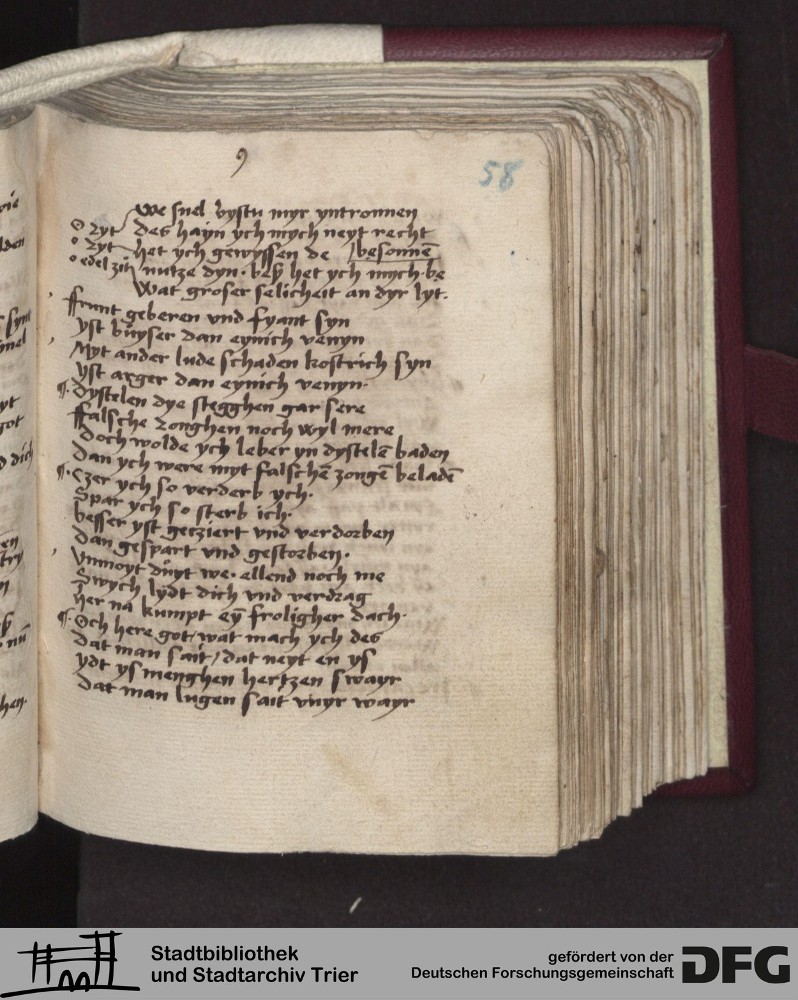 9
58
We snel bystu myr yntronnen
O zyt des hayn ych mych neyt recht
O zyt het ych gewyssen de besonnē
O edel zijt nutze dyn · beß het ych mych · be
Wat groser selicheit an dyr lyt ·
Ffrunt geberen vnd fyant syn
Yst buyser dan eynich venyn
Myt ander lude schaden kostrich syn
Yst arger dan eynich venyn ·
Dystelen dye stegghen gar sere
Ffalsche zonghen noch wyl mere
Doch wolde ych leber yn dystelē baden
Dan ych were myt falschē zongē beladē
Czer ych so verderb ych ·
Spar ych so sterb ich ·
besser yst gecziert vnd verdorben
Dan gespart vnd gestorben ·
Vnmoyt duyt we · ellend noch me
Swych lydt dich vnd verdrag
Her na kumpt eȳ froligher dach ·
Och here got / wat mach ych des
Dat man sait / dat neyt en ys
Ydt ys menghen hertzen swayr
Dat man lugen sait vuyr wayr
Stadtbibliothek
und Stadtarchiv Trier
gefördert von der
Deutschen Forschungsgemeinschaft
DFG